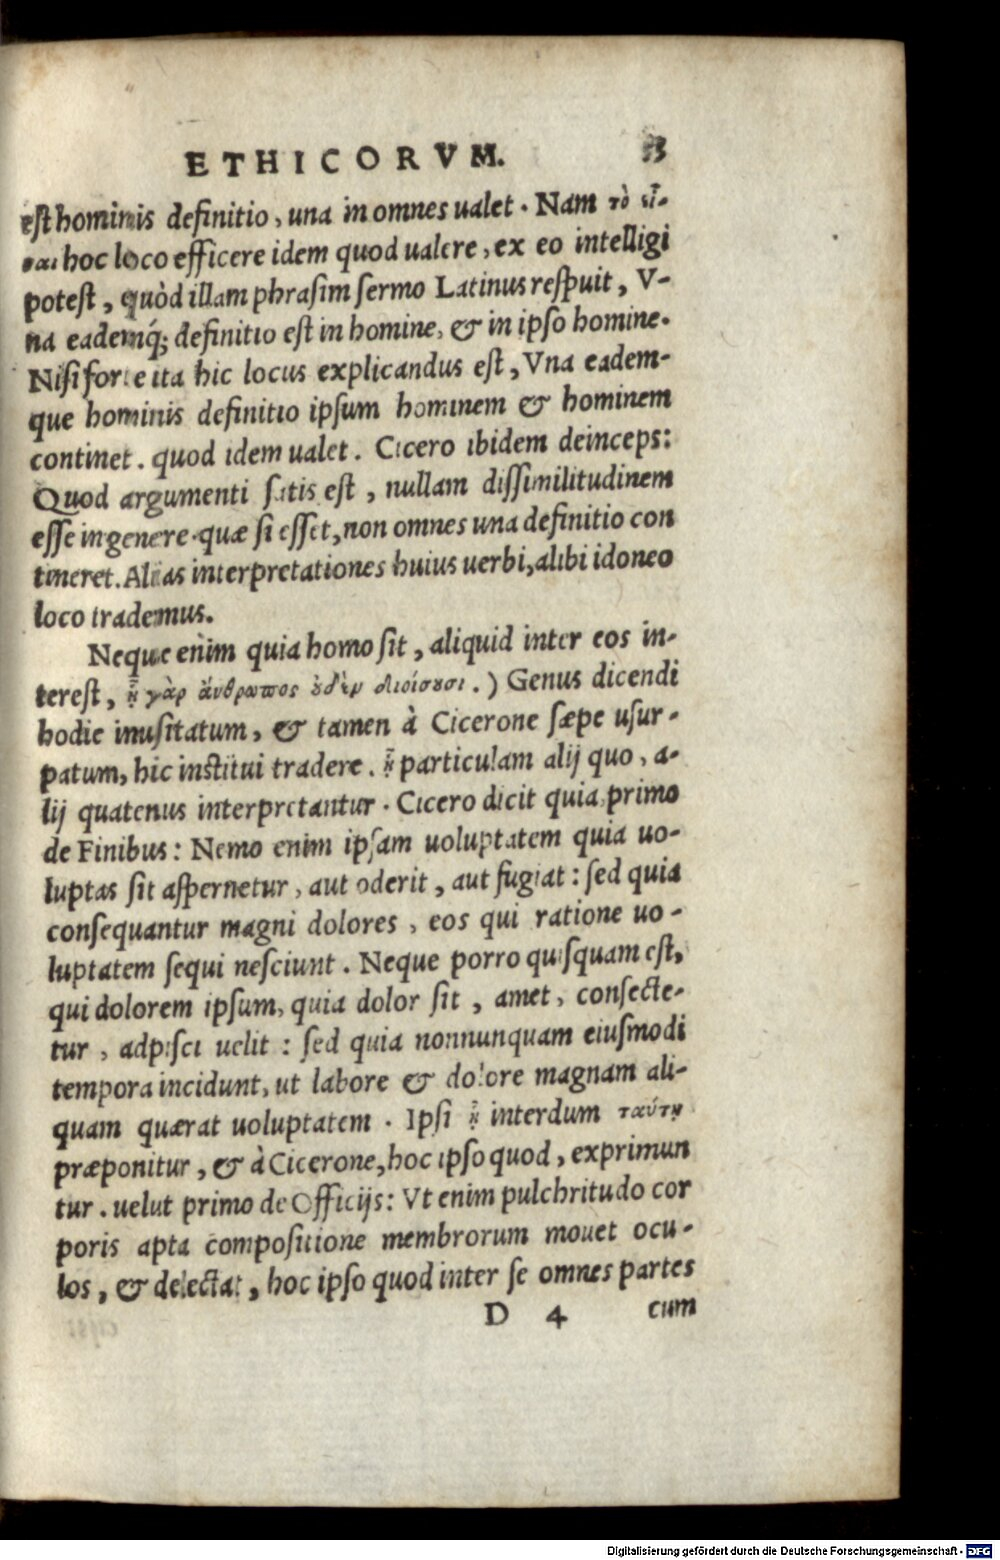 ETHICORVM.
est hominis definitio, una in omnes ualet. Nam τὸ εἶ-
ναι hoc loco efficere idem quod ualere, ex eo intelligi
potest, quòd illam phrasim sermo Latinus respuit, V-
na eademq́; definitio est in homine, & in ipso homine.
Nisi forte ita hic locus explicandus est, Vna eadem-
que hominis definitio ipsum hominem & hominem
continet. quod idem ualet. Cicero ibidem deinceps:
Quod argumenti satis est, nullam dissimilitudinem
esse in genere. quæ si esset, non omnes una definitio con
tineret. Alias interpretationes huius uerbi, alibi idoneo
loco trademus.
Neque enim quia homo sit, aliquid inter eos in-
terest, ᾗ γὰρ ἄνθρωπος οὐδὲν διοίσουσι.) Genus dicendi
hodie inusitatum, & tamen à Cicerone sæpe usur-
patum, hic institui tradere. ᾗ particulam alij quo, a-
lij quatenus interpretantur. Cicero dicit quia, primo
de Finibus: Nemo enim ipsam uoluptatem quia uo-
luptas sit aspernetur, aut oderit, aut fugiat: sed quia
consequantur magni dolores, eos qui ratione uo-
luptatem sequi nesciunt. Neque porro quisquam est,
qui dolorem ipsum, quia dolor sit, amet, consecte-
tur, adpisci uelit: sed quia nonnunquam eiusmodi
tempora incidunt, ut labore & dolore magnam ali-
quam quærat uoluptatem. Ipsi ᾗ interdum ταύτῃ
præponitur, & à Cicerone, hoc ipso quod, exprimun
tur. uelut primo de Officijs: Vt enim pulchritudo cor
poris apta compositione membrorum mouet ocu-
los, & delectat, hoc ipso quod inter se omnes partes
D 4 cum
Digitalisierung gefördert durch die Deutsche Forschungsgemeinschaft - DFG